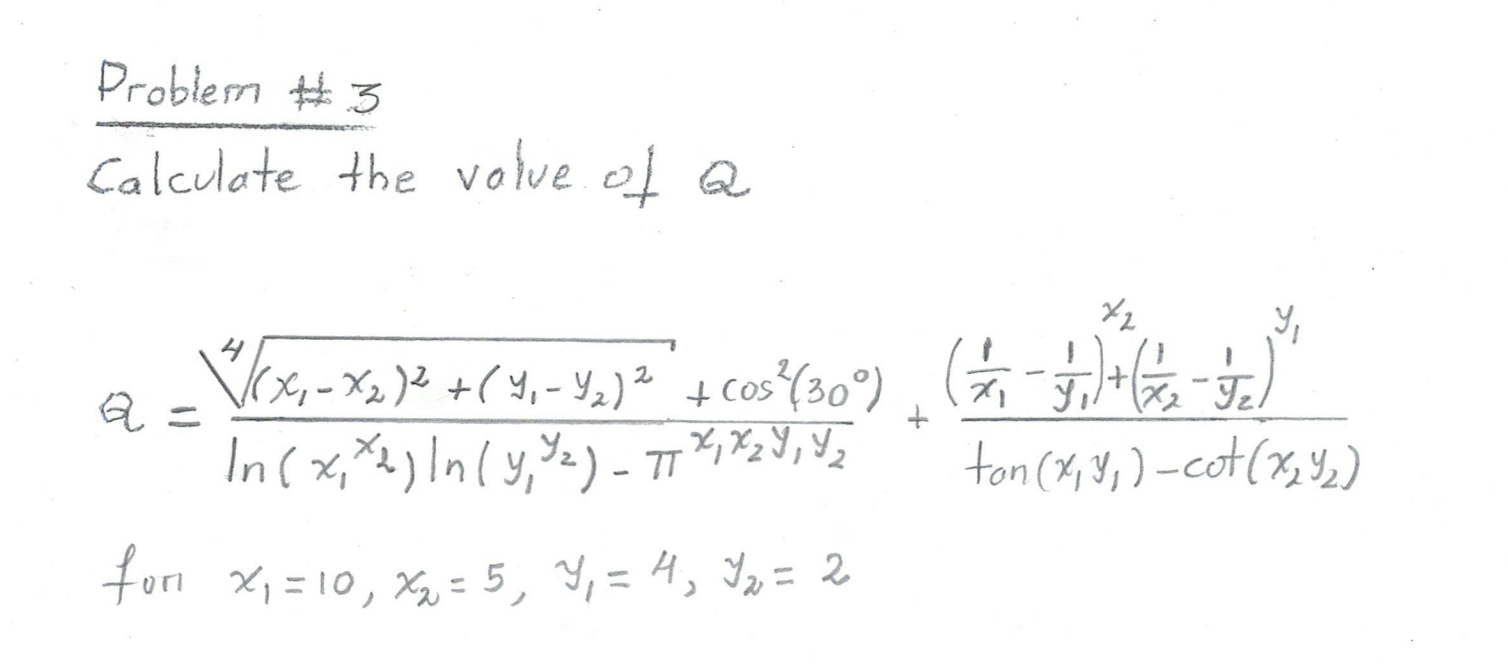 Problem # 3
Calculate the value of Q
Q = \frac{\sqrt[4]{(x_1 - x_2)^2 + (y_1 - y_2)^2} + \cos^2(30°)}{\ln(x_1^{x_2}) \ln(y_1^{y_2}) - \pi^{x_1 x_2 y_1 y_2}} + \frac{(\frac{1}{x_1} - \frac{1}{y_1})^{x_2} + (\frac{1}{x_2} - \frac{1}{y_2})^{y_1}}{\tan(x_1 y_1) - \cot(x_2 y_2)}
for x_1 = 10, x_2 = 5, y_1 = 4, y_2 = 2